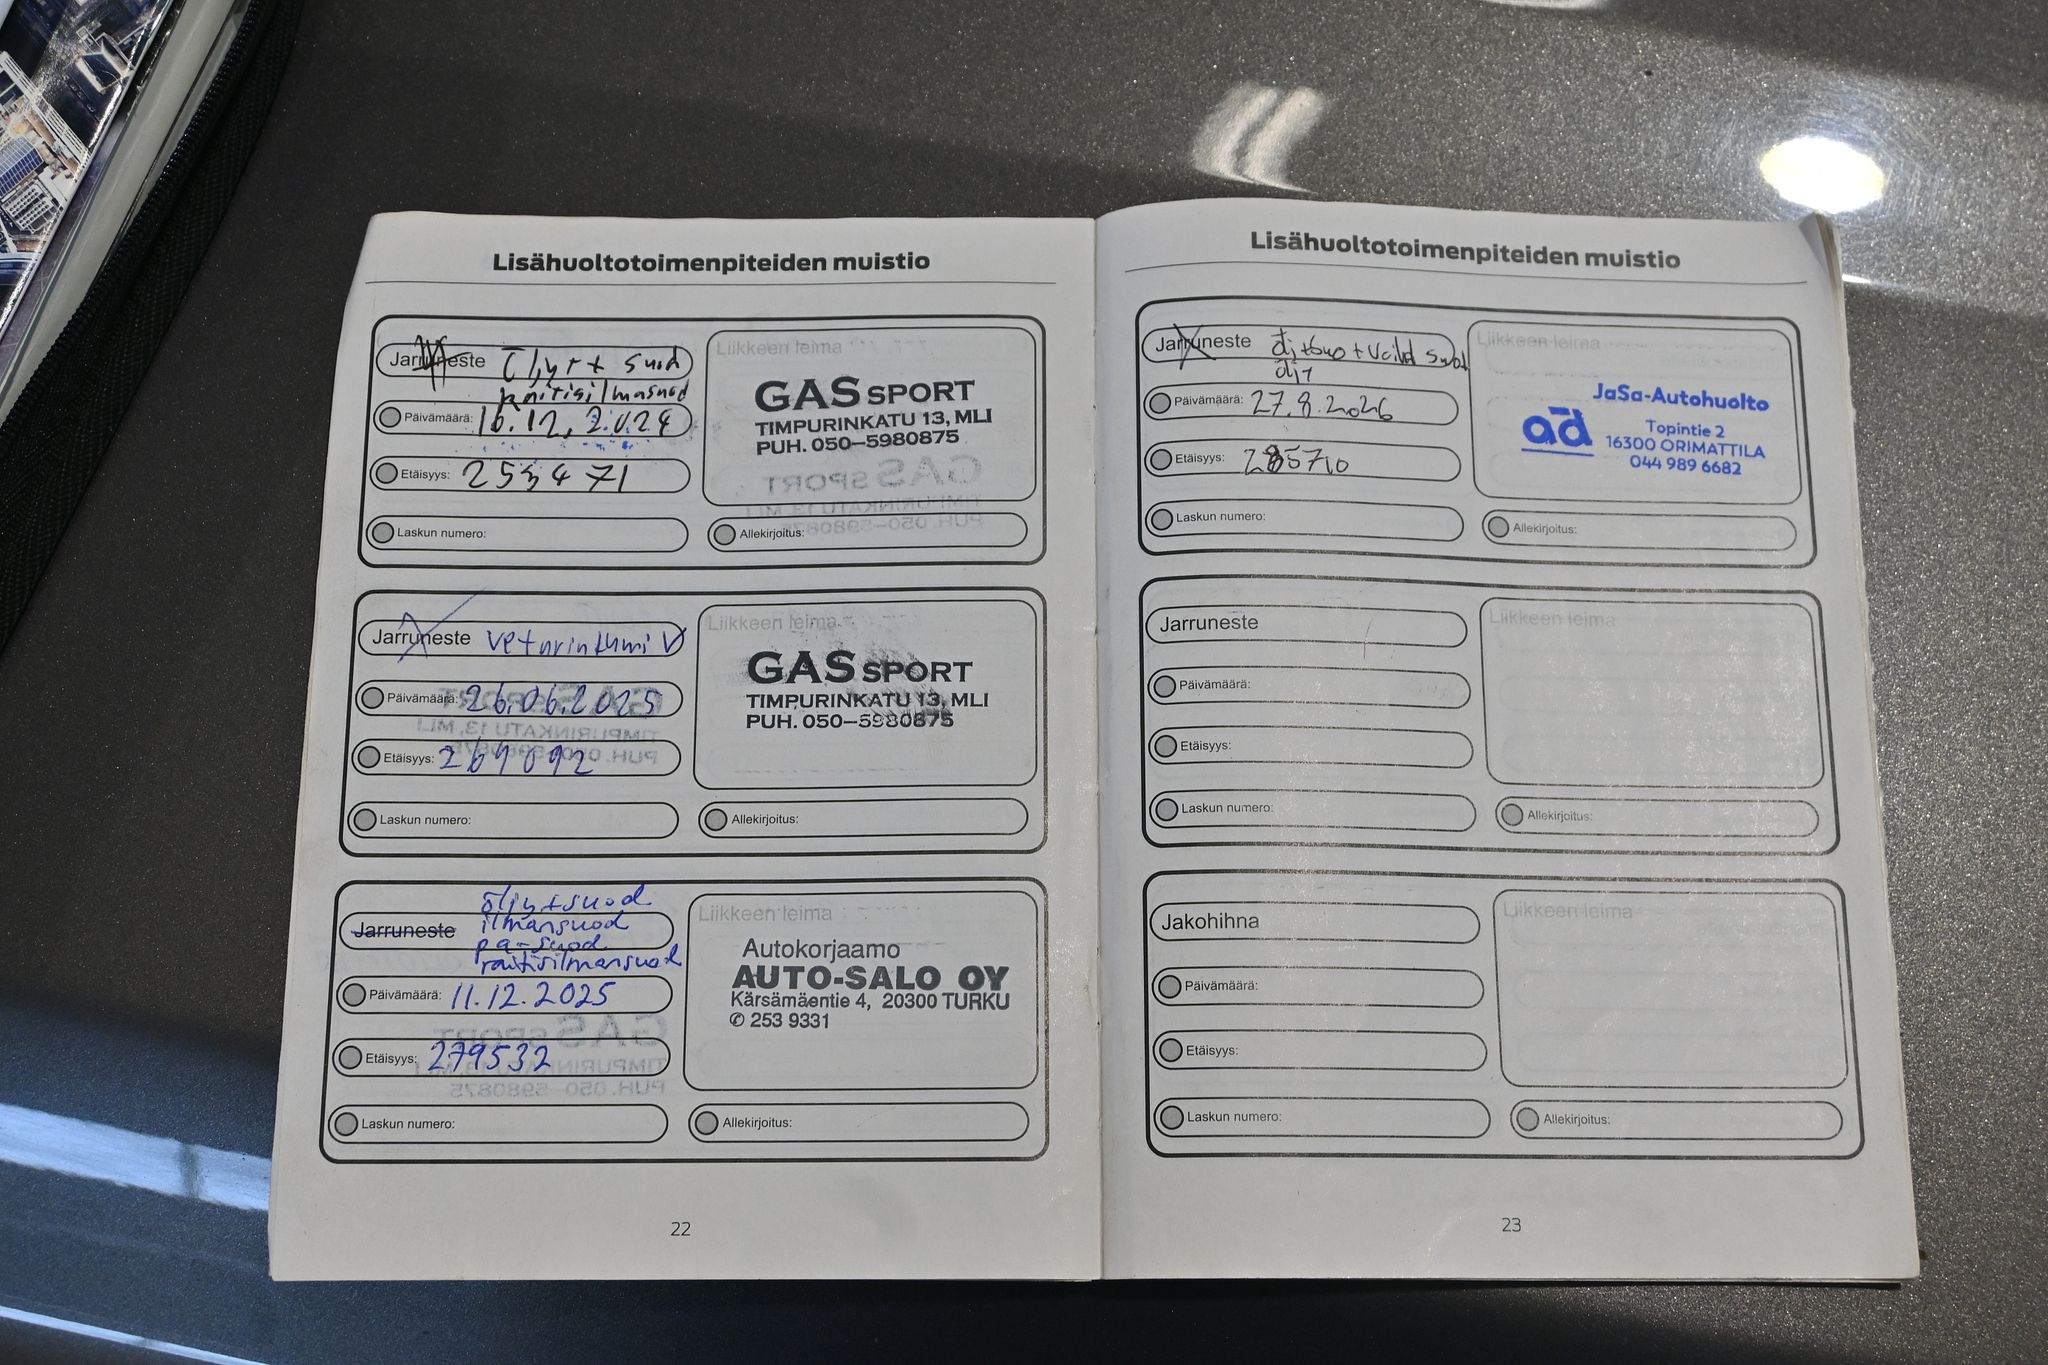 Lisähuoltotoimenpiteiden muistio
Jarruneste öljy + suod
raitisilmasuod
Päivämäärä: 16.12.2024
Etäisyys: 253471
Laskun numero:
Liikkeen leima
GAS SPORT
TIMPURINKATU 13, MLI
PUH. 050-5980875
Allekirjoitus:
Jarruneste
Päivämäärä: 26.06.2025
Etäisyys: 269092
Laskun numero:
Liikkeen leima
GAS SPORT
TIMPURINKATU 13, MLI
PUH. 050-5980875
Allekirjoitus:
öljy + suod
Jarruneste ilmansuod
pa-suod
raitisilmansuod
Päivämäärä: 11.12.2025
Etäisyys: 279532
Laskun numero:
Liikkeen leima
Autokorjaamo
AUTO-SALO OY
Kärsämäentie 4, 20300 TURKU
✆ 253 9331
Allekirjoitus:
22
Lisähuoltotoimenpiteiden muistio
Jarruneste
Päivämäärä: 27.8.2026
Etäisyys: 285710
Laskun numero:
Liikkeen leima
JaSa-Autohuolto
ad
Topintie 2
16300 ORIMATTILA
044 989 6682
Allekirjoitus:
Jarruneste
Päivämäärä:
Etäisyys:
Laskun numero:
Liikkeen leima
Allekirjoitus:
Jakohihna
Päivämäärä:
Etäisyys:
Laskun numero:
Liikkeen leima
Allekirjoitus:
23